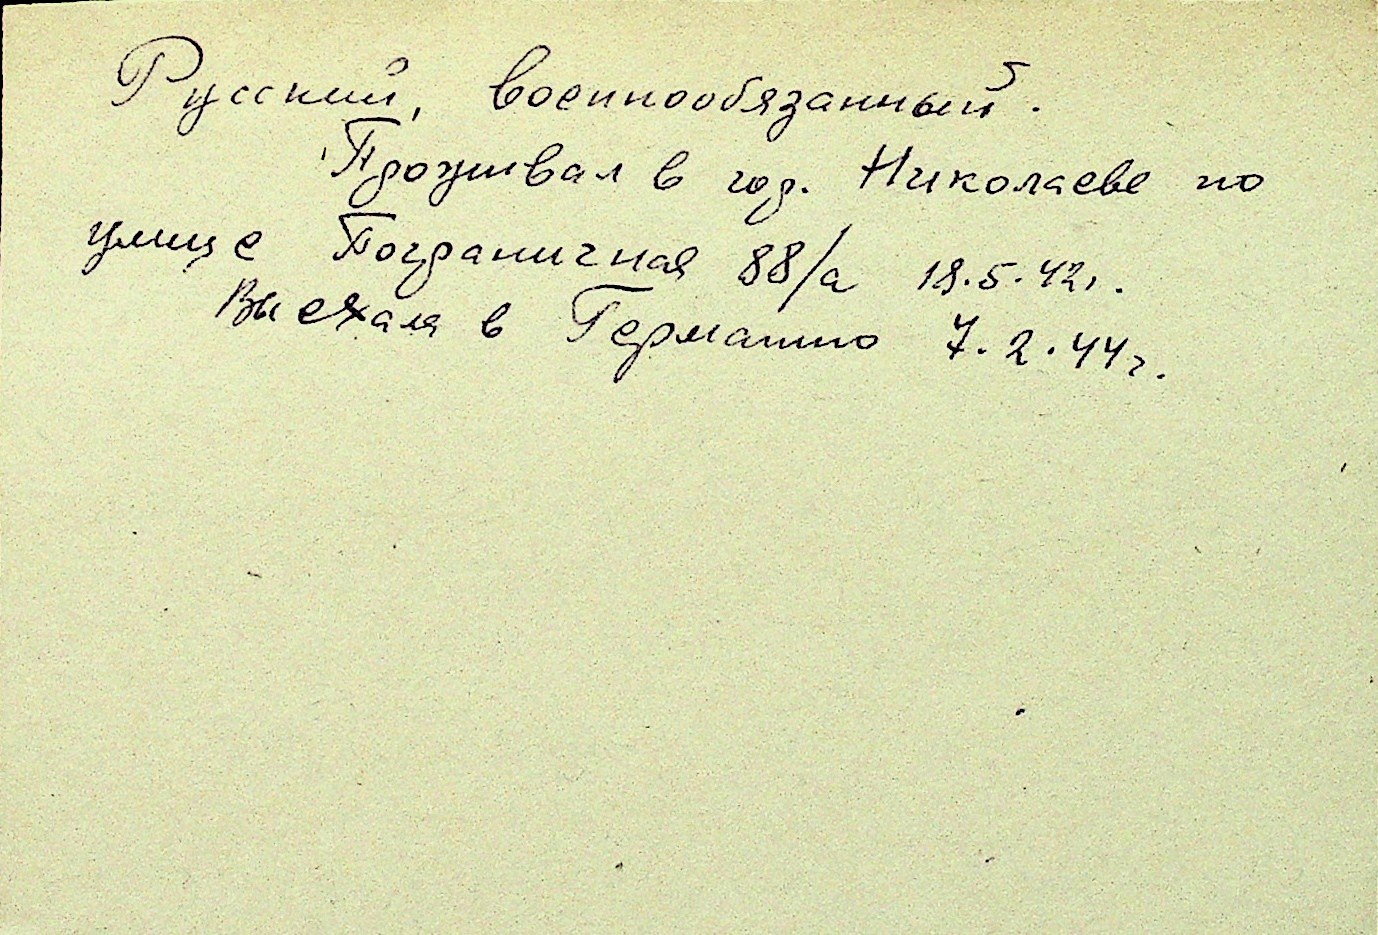 Русский, военнообязанный.
Проживал в гор. Николаеве по
улице Пограничная 88/а 18.5.42г.
Выехал в Германию 7.2.44г.